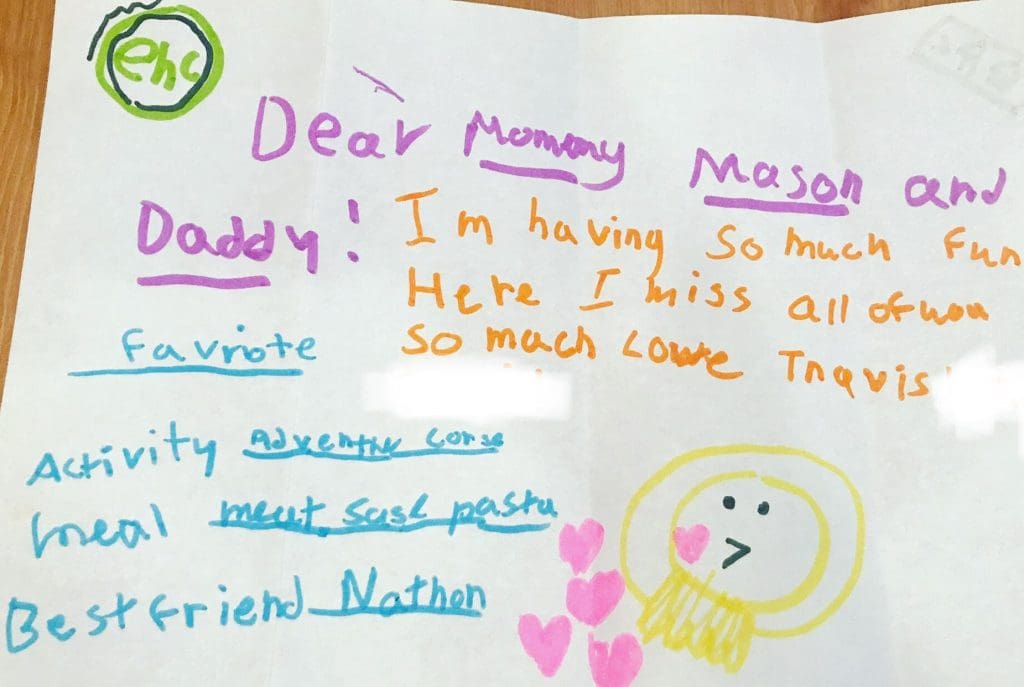 ehc
Dear Mommy Mason and
Daddy!
I m having so much fun
Here I miss all of you
so mach Lowe Travis
favriote
Activity Adventur corse
meal meat sase pasta
Best friend Nathon